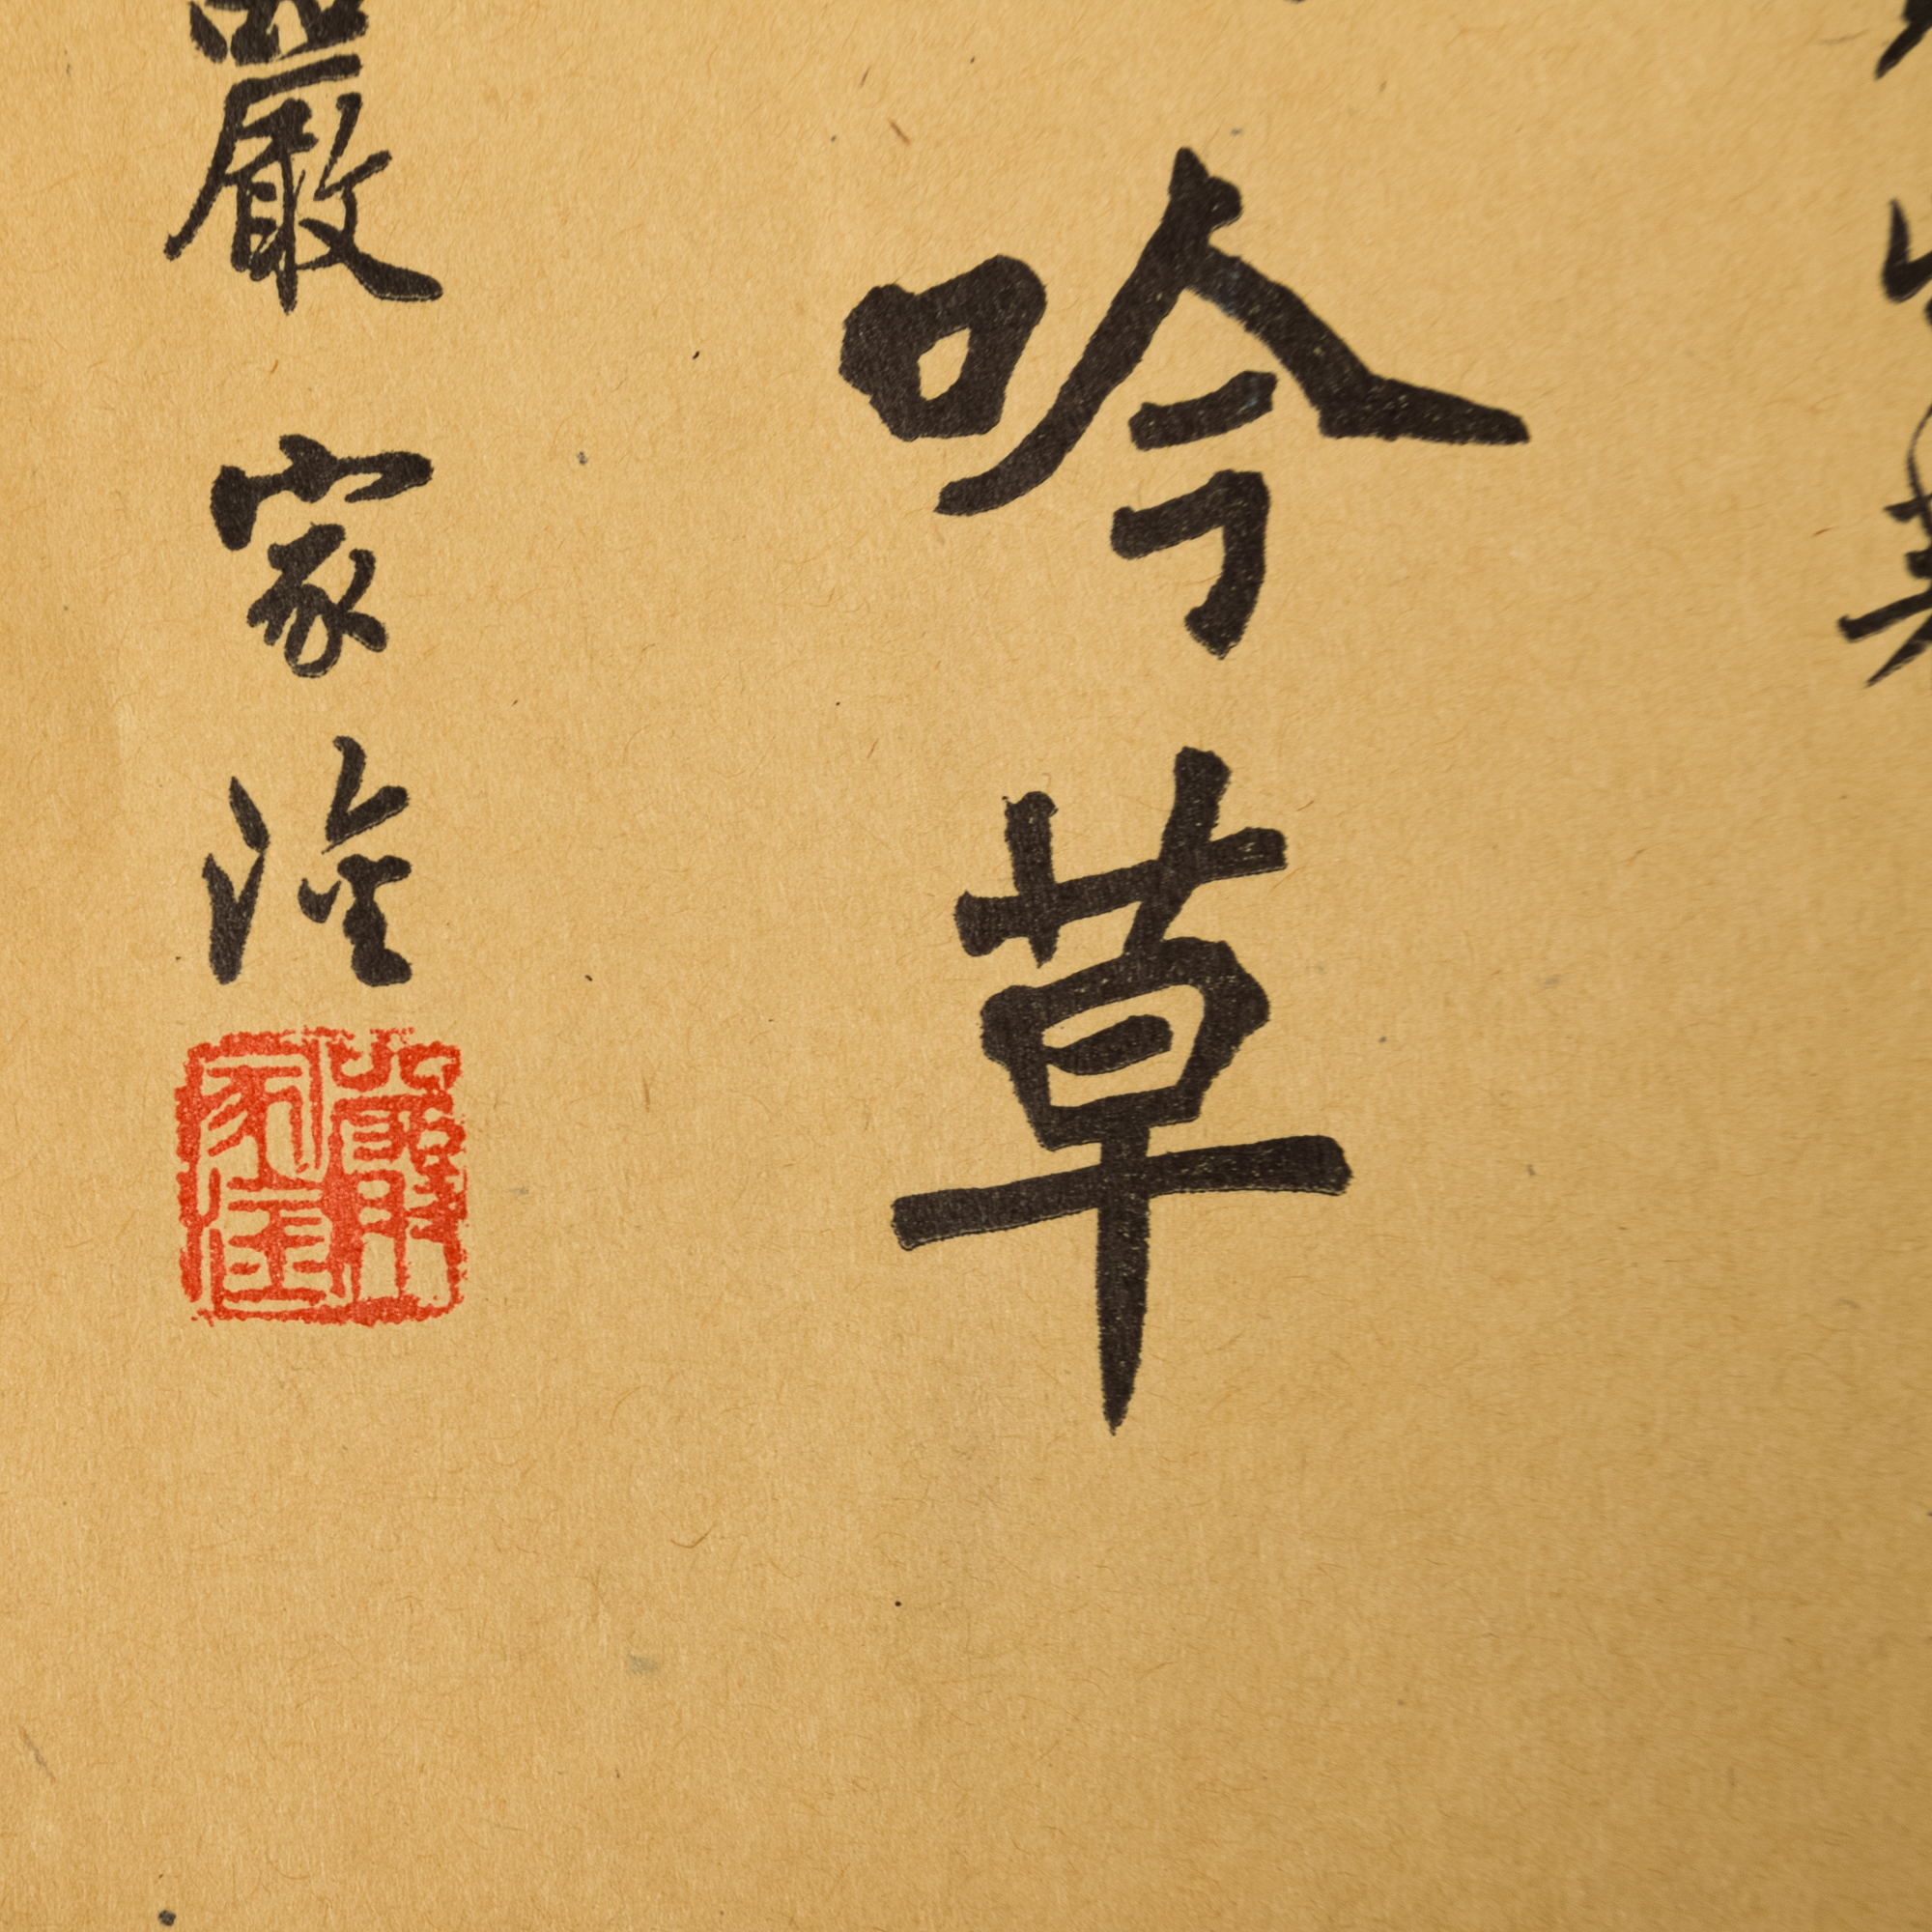 吟草
嚴家淦
嚴家淦